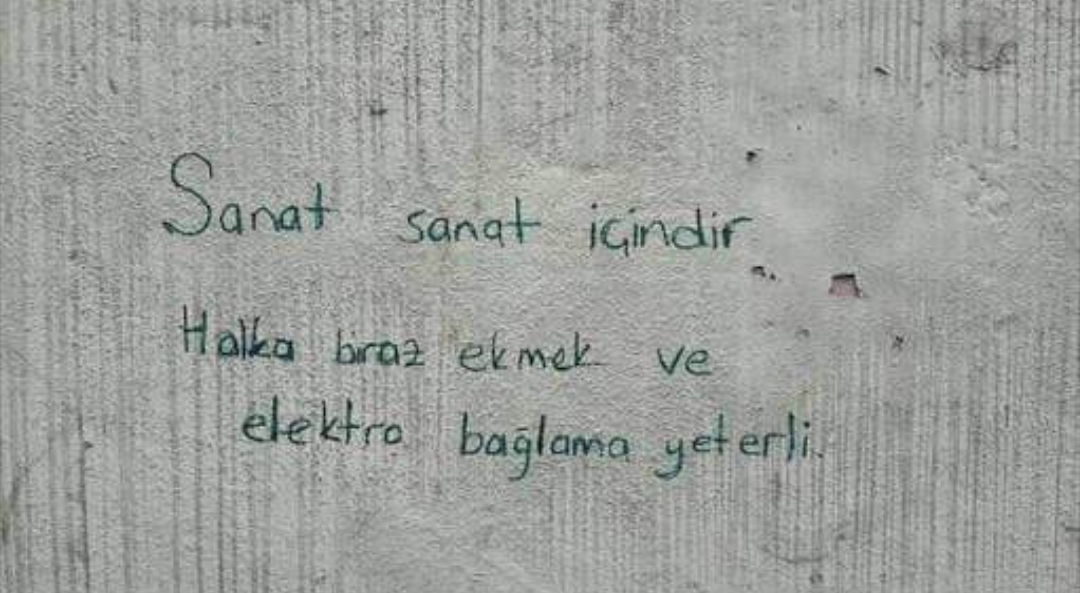 Sanat sanat içindir
Halka biraz ekmek ve
elektro bağlama yeterli.